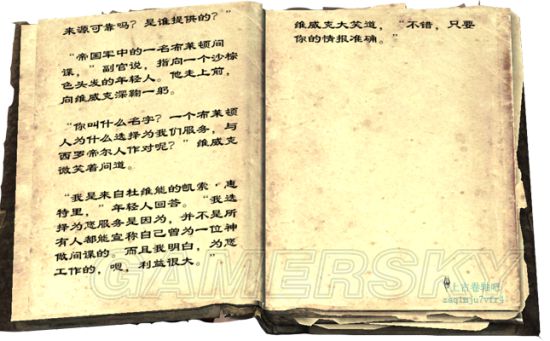 来源可靠吗？是谁提供的？”
“帝国军中的一名布莱顿间
谍，”副官说，指向一个沙棕
色头发的年轻人。他走上前，
向维威克深鞠一躬。
“你叫什么名字？一个布莱顿
人为什么选择为我们服务，与
西罗帝尔人作对呢？”维威克
微笑着问道。
“我是来自杜维能的凯索·惠
特里，”年轻人回答。“我选
择为您服务是因为，并不是所
有人都能宣称自己曾为一位神
做间谍的。而且我明白，为您
工作的，嗯，利益很大。”
维威克大笑道，“不错，只要
你的情报准确。”
GAMERSKY
上古卷轴吧